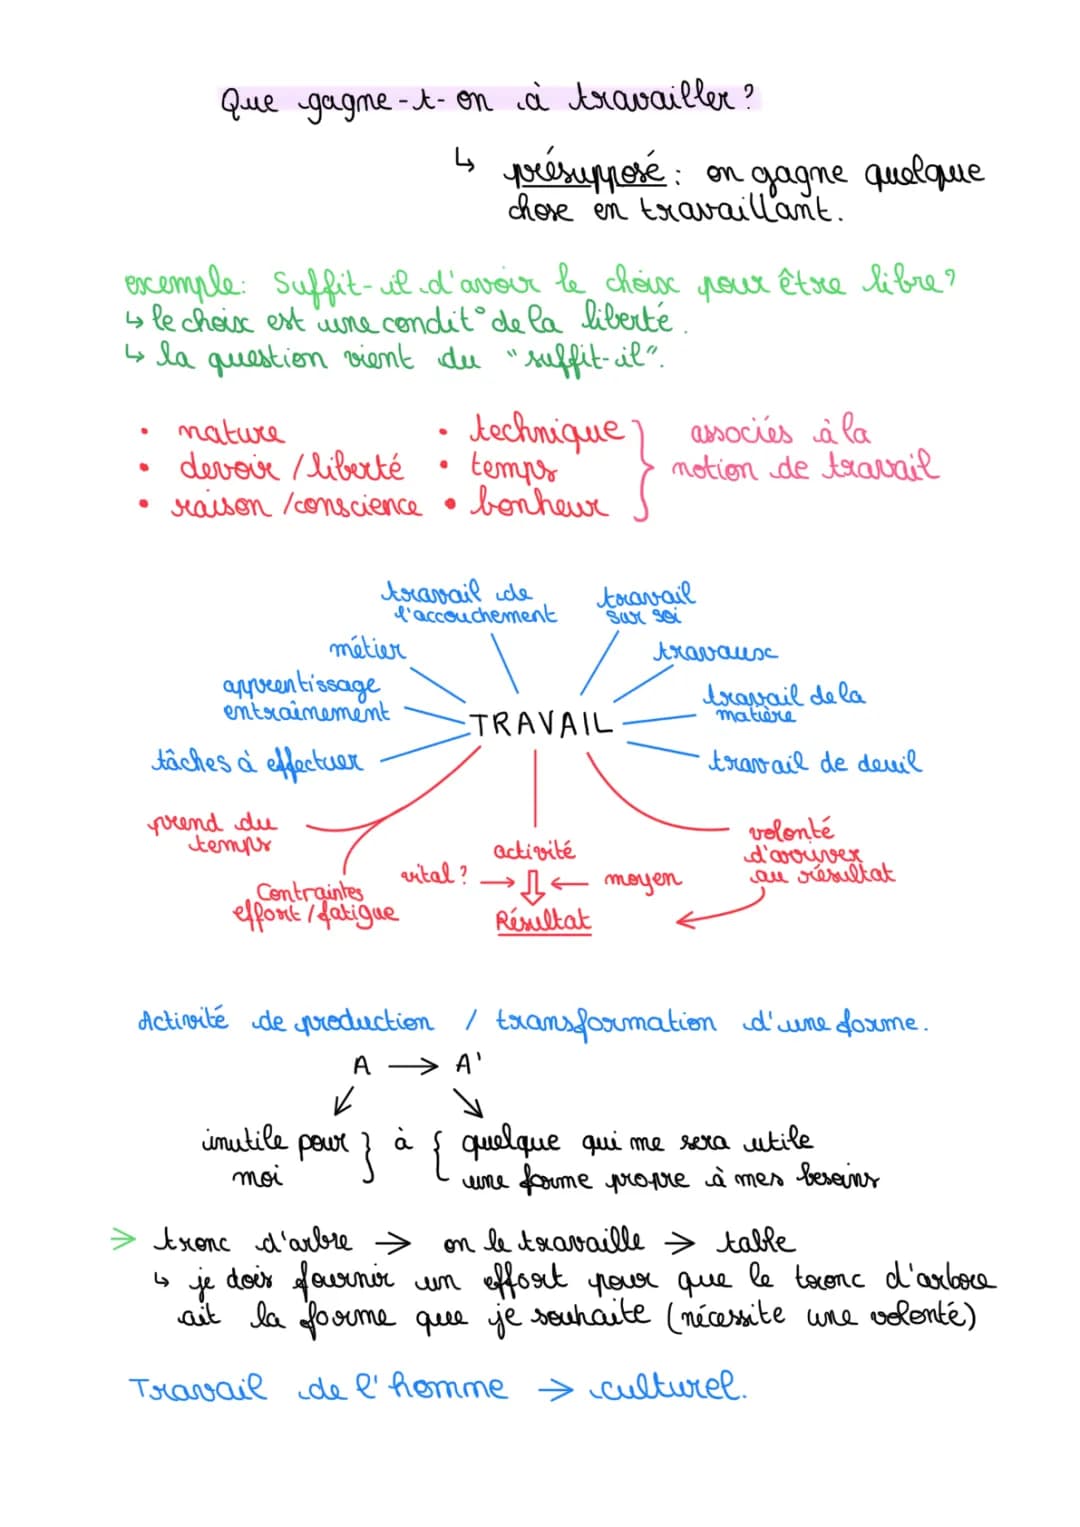 Que gagne-t-on à travailler?
↳ présupposé : on gagne quelque
chose en travaillant.
exemple: Suffit-il d'avoir le choix pour être libre?
↳ le choix est une condit° de la liberté.
↳ la question vient du "suffit-il".
• nature • technique } associés à la
• devoir / liberté • temps notion de travail
• raison / conscience • bonheur
travail de travail
l'accouchement sur soi
métier travaux
apprentissage travail de la
entraînement TRAVAIL matière
tâches à effectuer travail de deuil
prend du volonté
temps activité d'arriver
vital? → ⇓ ← moyen au résultat
Contraintes
effort / fatigue Résultat
Activité de production / transformation d'une forme.
A → A'
inutile pour } à { quelque qui me sera utile
moi une forme propre à mes besoins
→ tronc d'arbre → on le travaille → table
↳ je dois fournir un effort pour que le tronc d'arbore
ait la forme que je souhaite (nécessite une volonté)
Travail de l'homme → culturel.